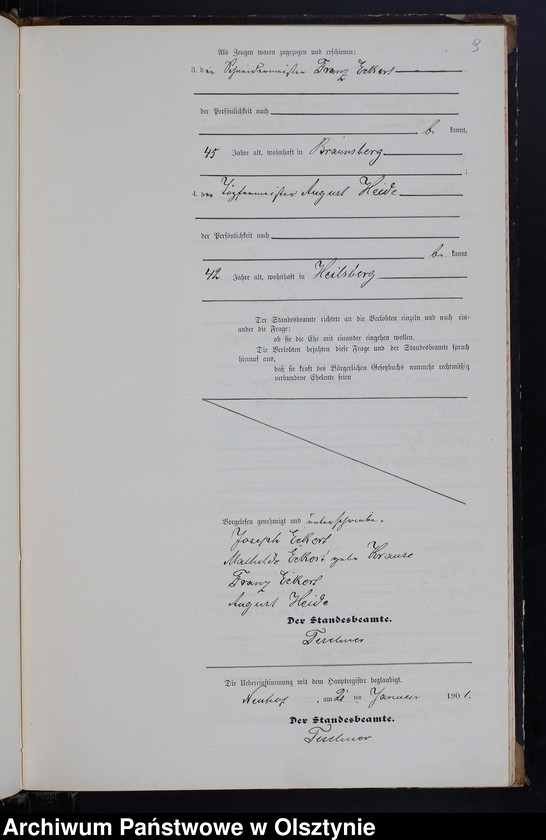 9
Als Zeugen waren zugezogen und erschienen:
3. der Schneidermeister Franz Eckert
der Persönlichkeit nach
be kannt,
45 Jahre alt, wohnhaft in Braunsberg
;
4. der Töpfermeister August Heide
der Persönlichkeit nach
be kannt
42 Jahre alt, wohnhaft in Heilsberg
Der Standesbeamte richtete an die Verlobten einzeln und nach ein-
ander die Frage:
ob sie die Ehe mit einander eingehen wollen.
Die Verlobten bejahten diese Frage und der Standesbeamte sprach
hierauf aus,
daß sie kraft des Bürgerlichen Gesetzbuchs nunmehr rechtmäßig
verbundene Eheleute seien
Vorgelesen genehmigt und unterschrieben.
Joseph Eckert
Mathilde Eckert geb. Krause
Franz Eckert
August Heide
Der Standesbeamte.
Teschner
Die Uebereinstimmung mit dem Hauptregister beglaubigt.
Neuhof, am ten Januar 1901.
Der Standesbeamte.
Teschner
Archiwum Państwowe w Olsztynie